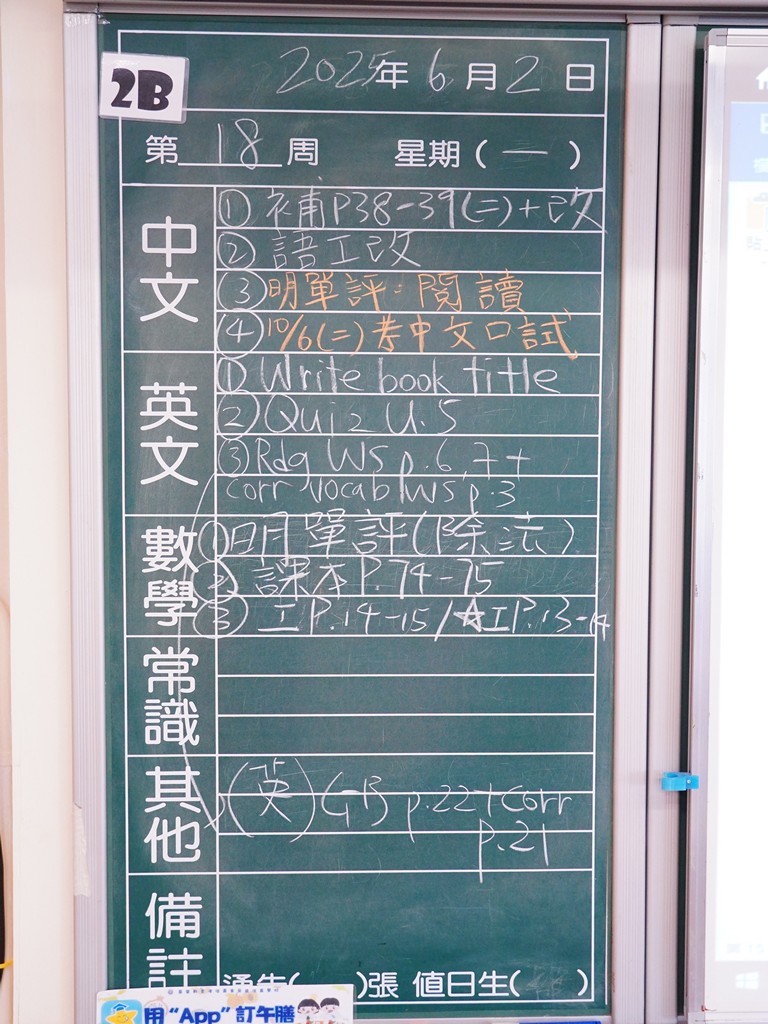 2B
2025年6月2日
第18周 星期(一)
中文
① 補P38-39(二)+改
② 語工改
③ 明單評:閱讀
④ 10/6(二)考中文口試
英文
① Write book title
② Quiz U.5
③ Rdg WS p.6,7+
corr vocab WS p.3
數學
① 明單評(除法)
② 課本P.74-75
③ 工P.14-15/☆工P.13-14
常識
其他
(英) GB p.22+corr
p.21
備註
通告( )張 值日生( )
用“App”訂午膳